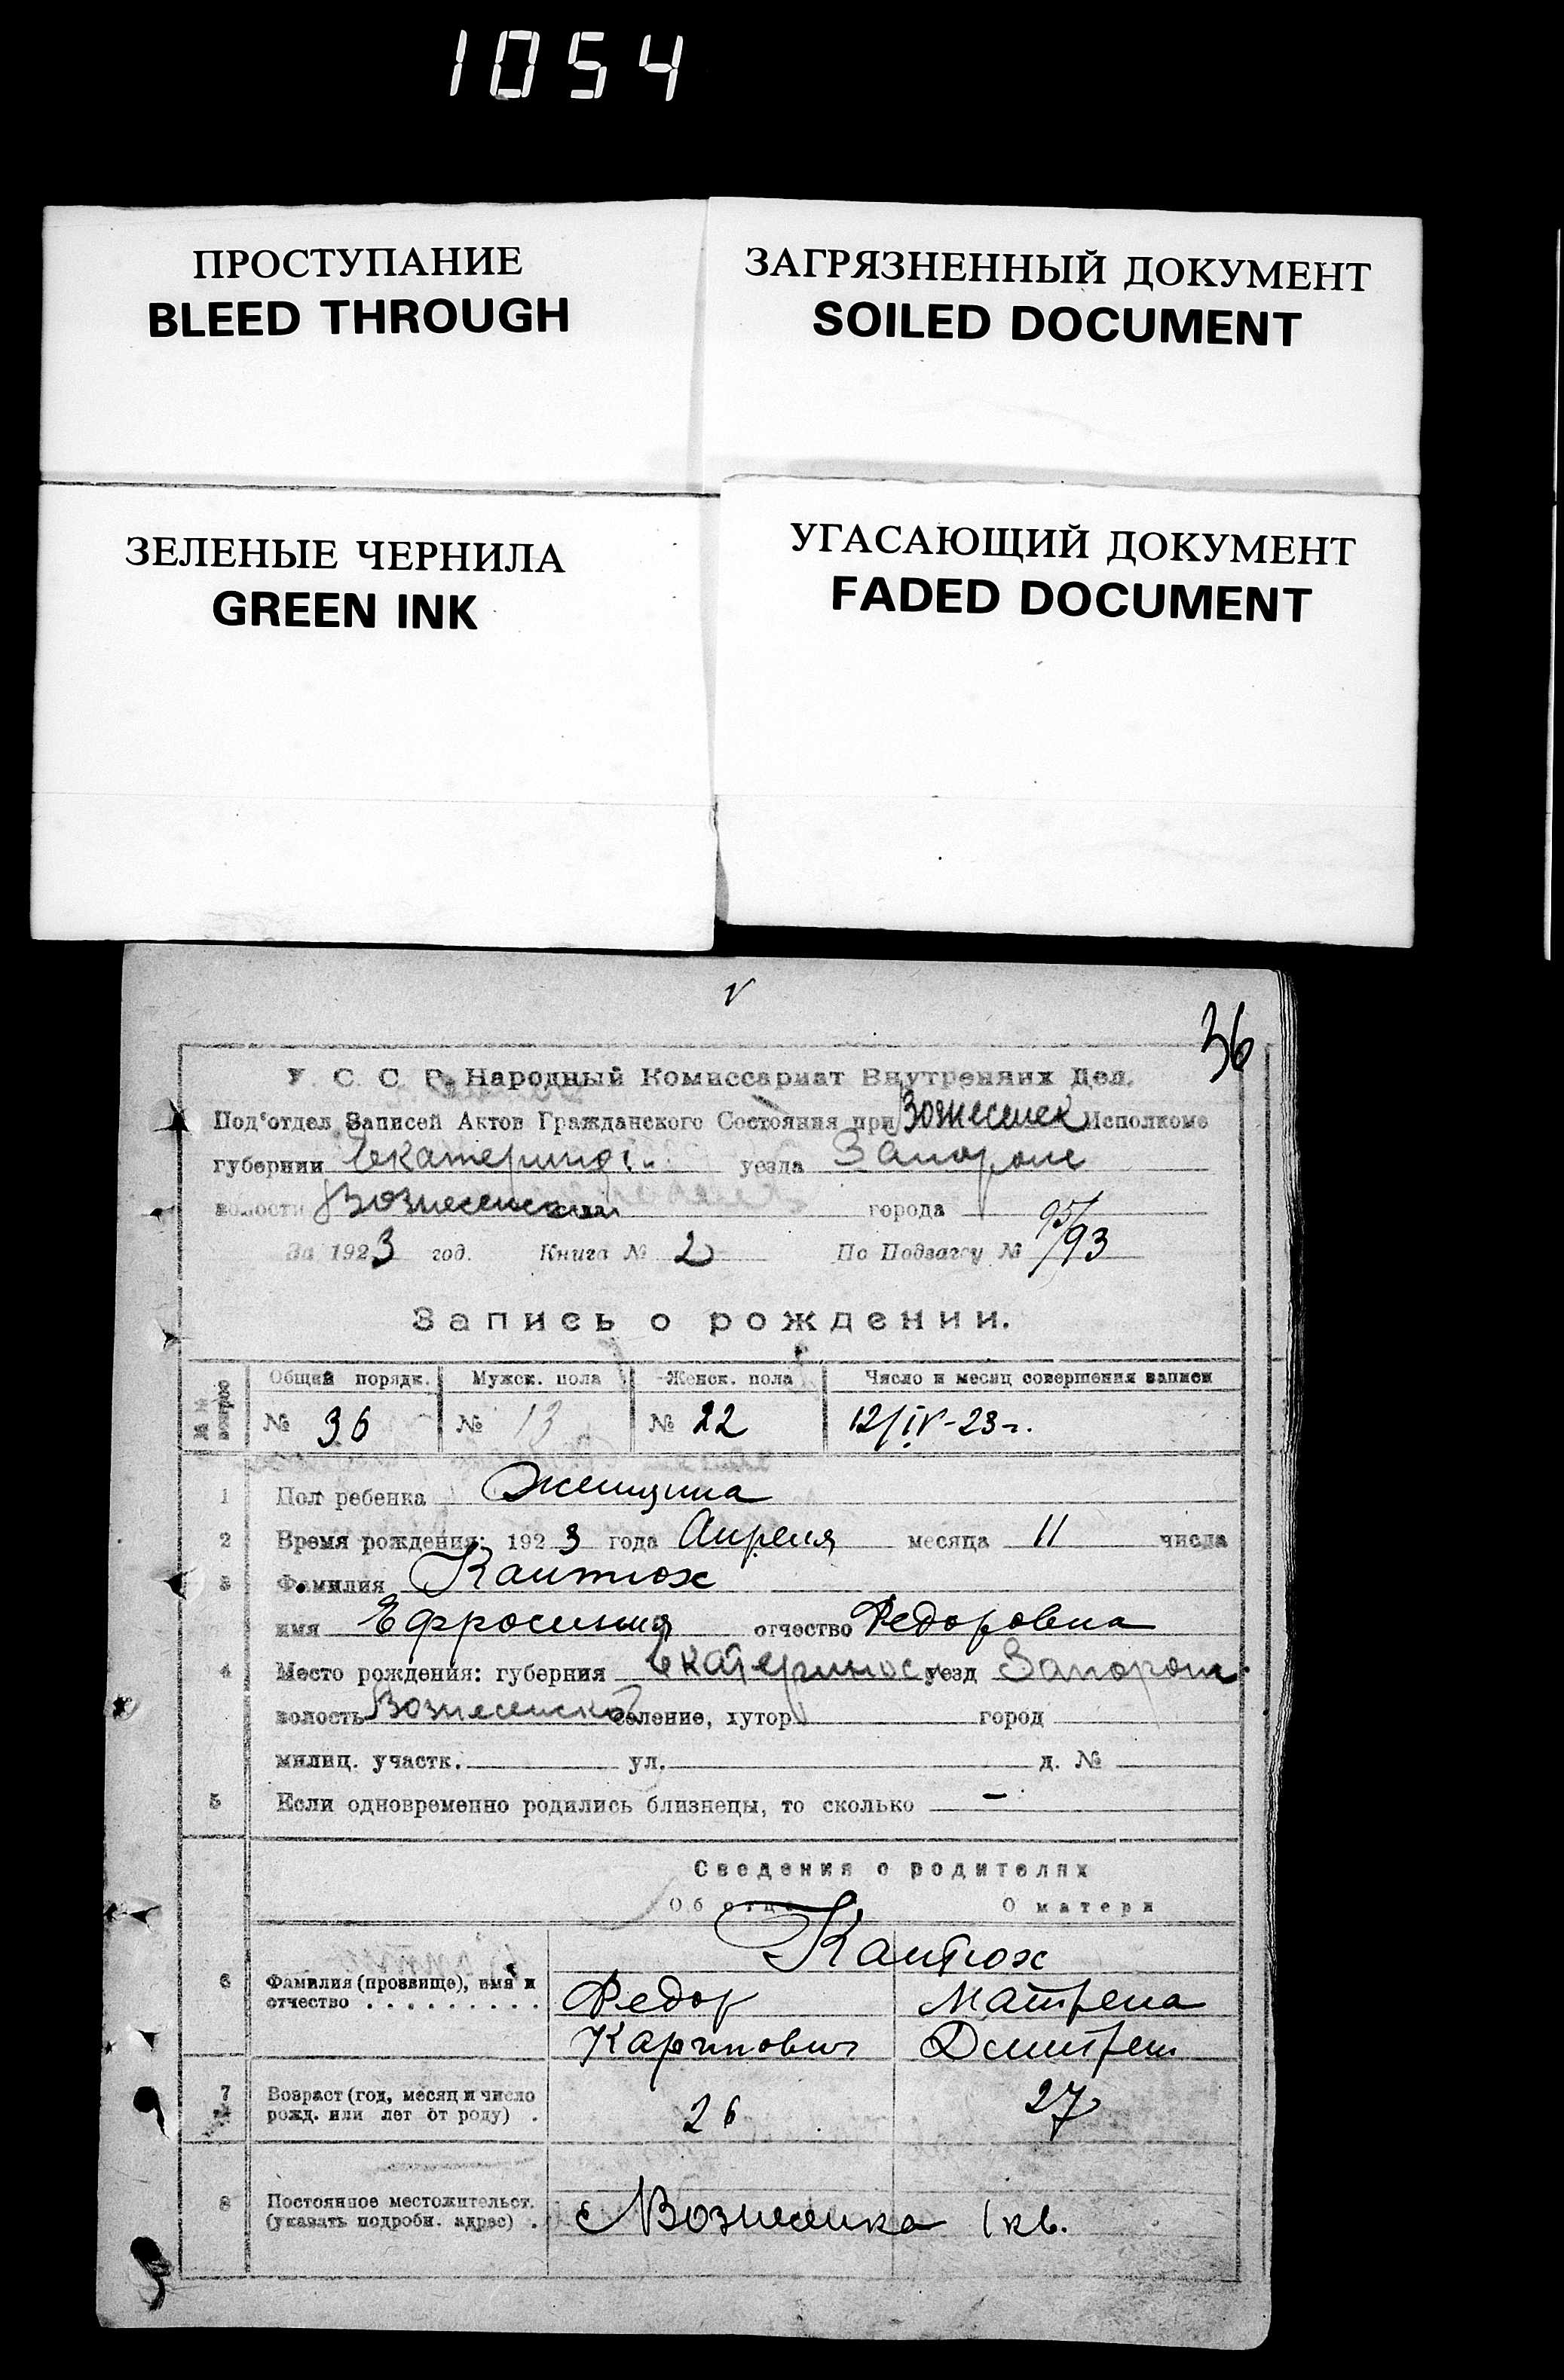 1054
ПРОСТУПАНИЕ
BLEED THROUGH
ЗАГРЯЗНЕННЫЙ ДОКУМЕНТ
SOILED DOCUMENT
ЗЕЛЕНЫЕ ЧЕРНИЛА
GREEN INK
УГАСАЮЩИЙ ДОКУМЕНТ
FADED DOCUMENT
36
У. С. С. Р. Народный Комиссариат Внутренних Дел.
Под'отдел Записей Актов Гражданского Состояния при Вознесенск Исполкоме
губернии уезда Запорож
волости Вознесенская города
За 1923 год. Книга № 2 По Подзагсу № 95/93
Запись о рождении.
№№ вопрос Общий порядк. Мужск. пола Женск. пола Число и месяц совершения записи
№ 36 № 13 № 22 12/IV-23 г.
1 Пол ребенка Женщина
2 Время рождения: 1923 года Апреля месяца 11 числа
3 Фамилия Кантюх
имя Ефросиния отчество Федоровна
4 Место рождения: губерния Екатеринос уезд Запорож
волость Вознесенской селение, хутор город
милиц. участк. ул. д. №
5 Если одновременно родились близнецы, то сколько –
Сведения о родителях
Об отце О матери
Кантюх
6 Фамилия (прозвище), имя и отчество Федор Матрена
Карпович Дмитрен
7 Возраст (год, месяц и число рожд. или лет от роду) 26 27
8 Постоянное местожительст. (указать подробн. адрес) с Вознесенка 1 кв.